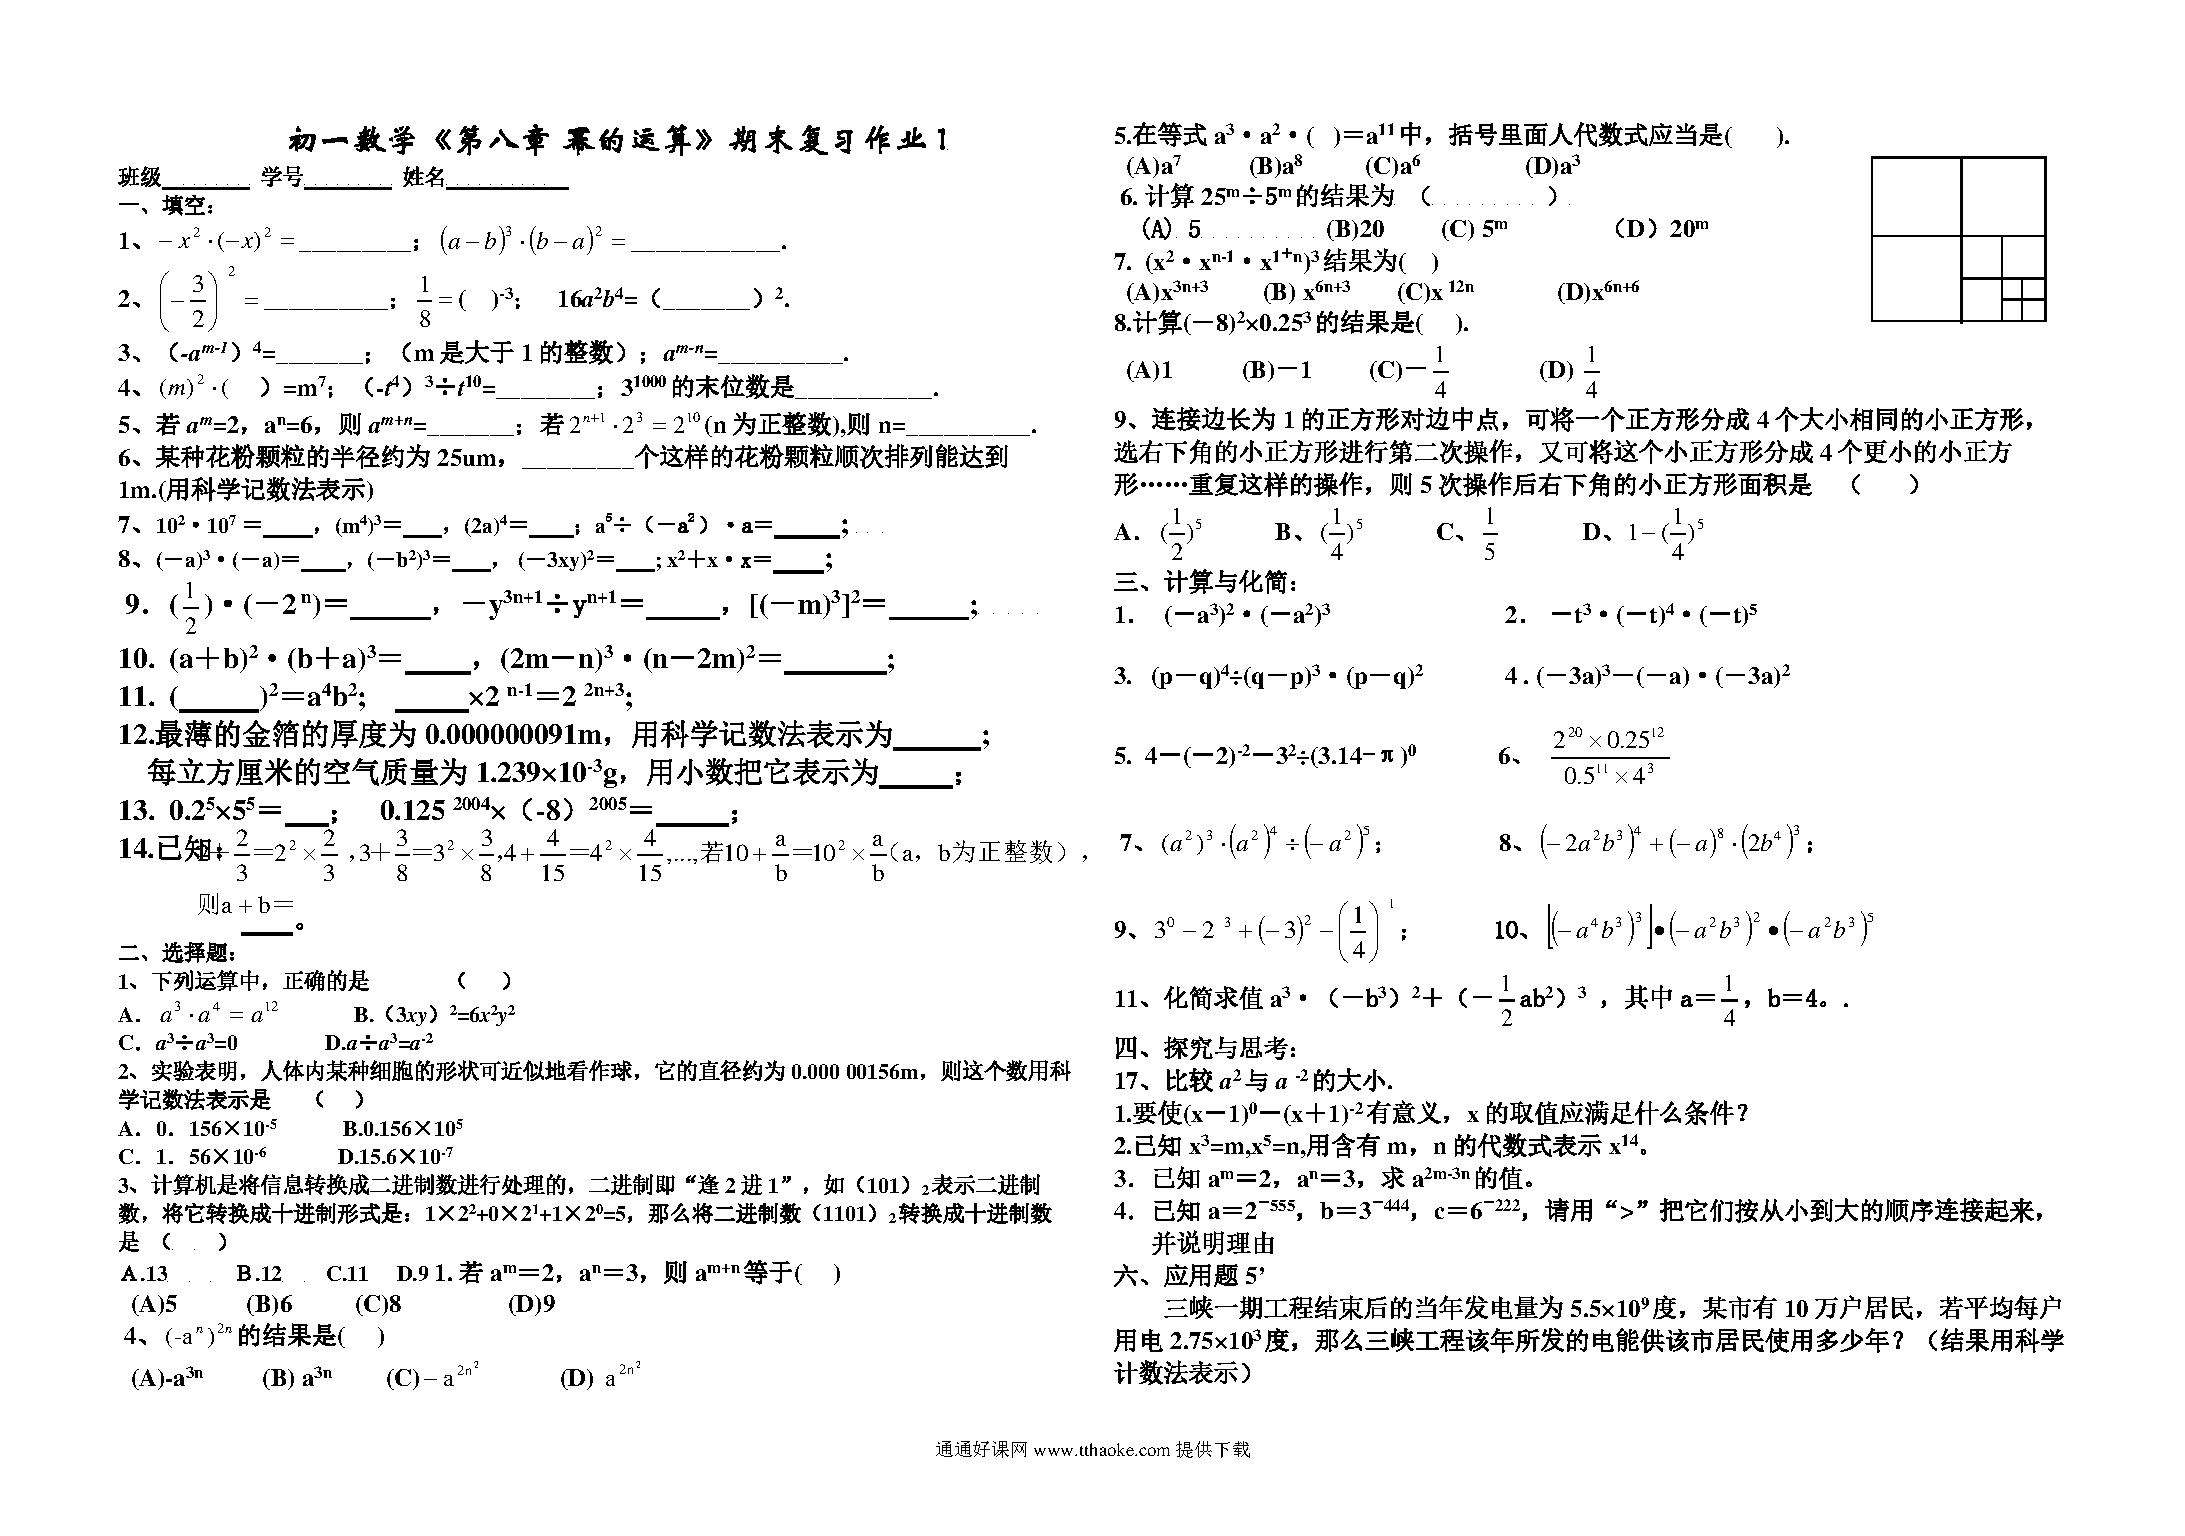 初一数学《第八章 幂的运算》期末复习作业1
班级________ 学号________ 姓名___________
一、填空：
1、−x²·(−x)²=_________；(a−b)³·(b−a)²=____________.
2、(−3/2)²=__________；1/8=( )⁻³； 16a²b⁴=（_______）².
3、（-aᵐ⁻¹）⁴=_______；（m是大于1的整数）；aᵐ⁻ⁿ=__________.
4、(m)²·( ）=m⁷；（-t⁴）³÷t¹⁰=________；3¹⁰⁰⁰的末位数是___________.
5、若aᵐ=2，aⁿ=6，则aᵐ⁺ⁿ=_______；若2ⁿ⁺¹·2³=2¹⁰(n为正整数),则n=__________.
6、某种花粉颗粒的半径约为25um，_________个这样的花粉颗粒顺次排列能达到
1m.(用科学记数法表示)
7、10²·10⁷＝____，(m⁴)³＝___，(2a)⁴＝____；a⁵÷（－a²）·a＝_____；
8、(－a)³·(－a)＝____，(－b²)³＝___， (－3xy)²＝___; x²＋x·x＝____；
9．(1/2)·(－2ⁿ)＝_____，－y³ⁿ⁺¹÷yⁿ⁺¹＝_____，[(－m)³]²＝_____；
10. (a＋b)²·(b＋a)³＝____，(2m－n)³·(n－2m)²＝______；
11. (_____)²＝a⁴b²; _____×2ⁿ⁻¹＝2²ⁿ⁺³;
12.最薄的金箔的厚度为0.000000091m，用科学记数法表示为______；
每立方厘米的空气质量为1.239×10⁻³g，用小数把它表示为_____；
13. 0.2⁵×5⁵＝___； 0.125²⁰⁰⁴×（-8）²⁰⁰⁵＝_____；
14.已知：2+2/3=2²×2/3，3+3/8=3²×3/8，4+4/15=4²×4/15,...,若10+a/b=10²×a/b（a，b为正整数），
则a+b=____。
二、选择题：
1、下列运算中，正确的是 （ ）
A．a³·a⁴=a¹² B.（3xy）²=6x²y²
C．a³÷a³=0 D.a÷a³=a⁻²
2、实验表明，人体内某种细胞的形状可近似地看作球，它的直径约为0.000 00156m，则这个数用科
学记数法表示是 （ ）
A．0．156×10⁻⁵ B.0.156×10⁵
C．1．56×10⁻⁶ D.15.6×10⁻⁷
3、计算机是将信息转换成二进制数进行处理的，二进制即“逢2进1”，如（101）₂表示二进制
数，将它转换成十进制形式是：1×2²+0×2¹+1×2⁰=5，那么将二进制数（1101）₂转换成十进制数
是 （ ）
A.13 B.12 C.11 D.9 1. 若aᵐ＝2，aⁿ＝3，则aᵐ⁺ⁿ等于( )
(A)5 (B)6 (C)8 (D)9
4、(-aⁿ)²ⁿ的结果是( )
(A)-a³ⁿ (B) a³ⁿ (C)−a^(2n²) (D) a^(2n²)
5.在等式a³·a²·( )＝a¹¹中，括号里面人代数式应当是( ).
(A)a⁷ (B)a⁸ (C)a⁶ (D)a³
6. 计算25ᵐ÷5ᵐ的结果为 （ ）
(A) 5 (B)20 (C) 5ᵐ （D）20ᵐ
7. (x²·xⁿ⁻¹·x¹⁺ⁿ)³结果为( )
(A)x³ⁿ⁺³ (B) x⁶ⁿ⁺³ (C)x¹²ⁿ (D)x⁶ⁿ⁺⁶
8.计算(－8)²×0.25³的结果是( ).
(A)1 (B)－1 (C)－1/4 (D) 1/4
9、连接边长为1的正方形对边中点，可将一个正方形分成4个大小相同的小正方形，
选右下角的小正方形进行第二次操作，又可将这个小正方形分成4个更小的小正方
形……重复这样的操作，则5次操作后右下角的小正方形面积是 （ ）
A．(1/2)⁵ B、(1/4)⁵ C、1/5 D、1−(1/4)⁵
三、计算与化简：
1． (－a³)²·(－a²)³ 2． －t³·(－t)⁴·(－t)⁵
3. (p－q)⁴÷(q－p)³·(p－q)² 4 . (－3a)³－(－a)·(－3a)²
5. 4－(－2)⁻²－3²÷(3.14－π)⁰ 6、 (2²⁰×0.25¹²)/(0.5¹¹×4³)
7、(a²)³·(a²)⁴÷(−a²)⁵； 8、(−2a²b³)⁴+(−a)⁸·(2b⁴)³；
9、3⁰−2 ³+(−3)²−(1/4) ¹； 10、[(−a⁴b³)³]•(−a²b³)²•(−a²b³)⁵
11、化简求值a³·（－b³）²＋（－1/2ab²）³ ，其中a＝1/4，b＝4。.
四、探究与思考：
17、比较a²与a⁻²的大小.
1.要使(x－1)⁰－(x＋1)⁻²有意义，x的取值应满足什么条件？
2.已知x³=m,x⁵=n,用含有m，n的代数式表示x¹⁴。
3．已知aᵐ＝2，aⁿ＝3，求a²ᵐ⁻³ⁿ的值。
4．已知a＝2⁻⁵⁵⁵，b＝3⁻⁴⁴⁴，c＝6⁻²²²，请用“>”把它们按从小到大的顺序连接起来，
并说明理由
六、应用题5’
三峡一期工程结束后的当年发电量为5.5×10⁹度，某市有10万户居民，若平均每户
用电2.75×10³度，那么三峡工程该年所发的电能供该市居民使用多少年？（结果用科学
计数法表示）
通通好课网 www.tthaoke.com 提供下载